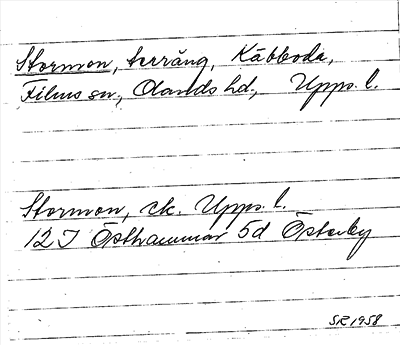 Stormon, terräng, Kåbboda,
Films sn, Olands hd, Upps. l.
Stormon, ek. Upps. l.
12 I Östhammar 5d Österby
SR 1958